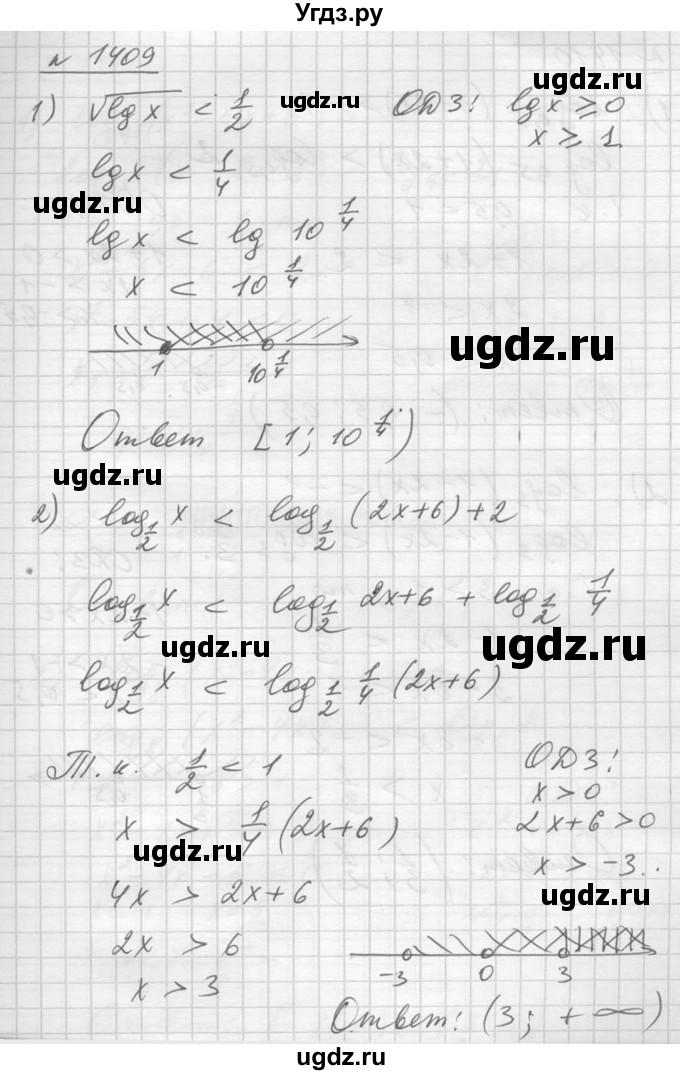 Угдз.ру
№ 1409
1) √lg x < 1/2 ugdz.ru ОДЗ! lg x ≥ 0
x ≥ 1
lg x < 1/4
ugdz.ru
lg x < lg 10^(1/4)
x < 10^(1/4)
ugdz.ru
1 10^(1/4)
Ответ [1; 10^(1/4))
ugdz.ru
2) log_(1/2) x < log_(1/2) (2x+6) + 2
log_(1/2) x < log_(1/2) 2x+6 + log_(1/2) 1/4
ugdz.ru ugdz.ru
log_(1/2) x < log_(1/2) 1/4 (2x+6)
Т.к. 1/2 < 1 ОДЗ!
x > 0
x > 1/4 (2x+6) 2x+6 > 0
ugdz.ru x > -3
4x > 2x+6 ugdz.ru
2x > 6
-3 0 3
x > 3
Ответ: (3; +∞)
ugdz.ru